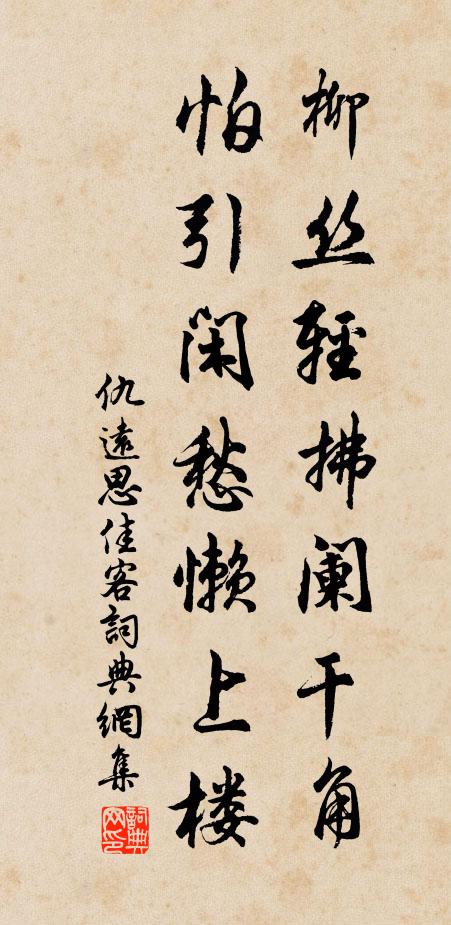 柳丝輕拂阑干角
怕引闲愁懒上楼
仇遠思佳客詞典網集
詞典網印